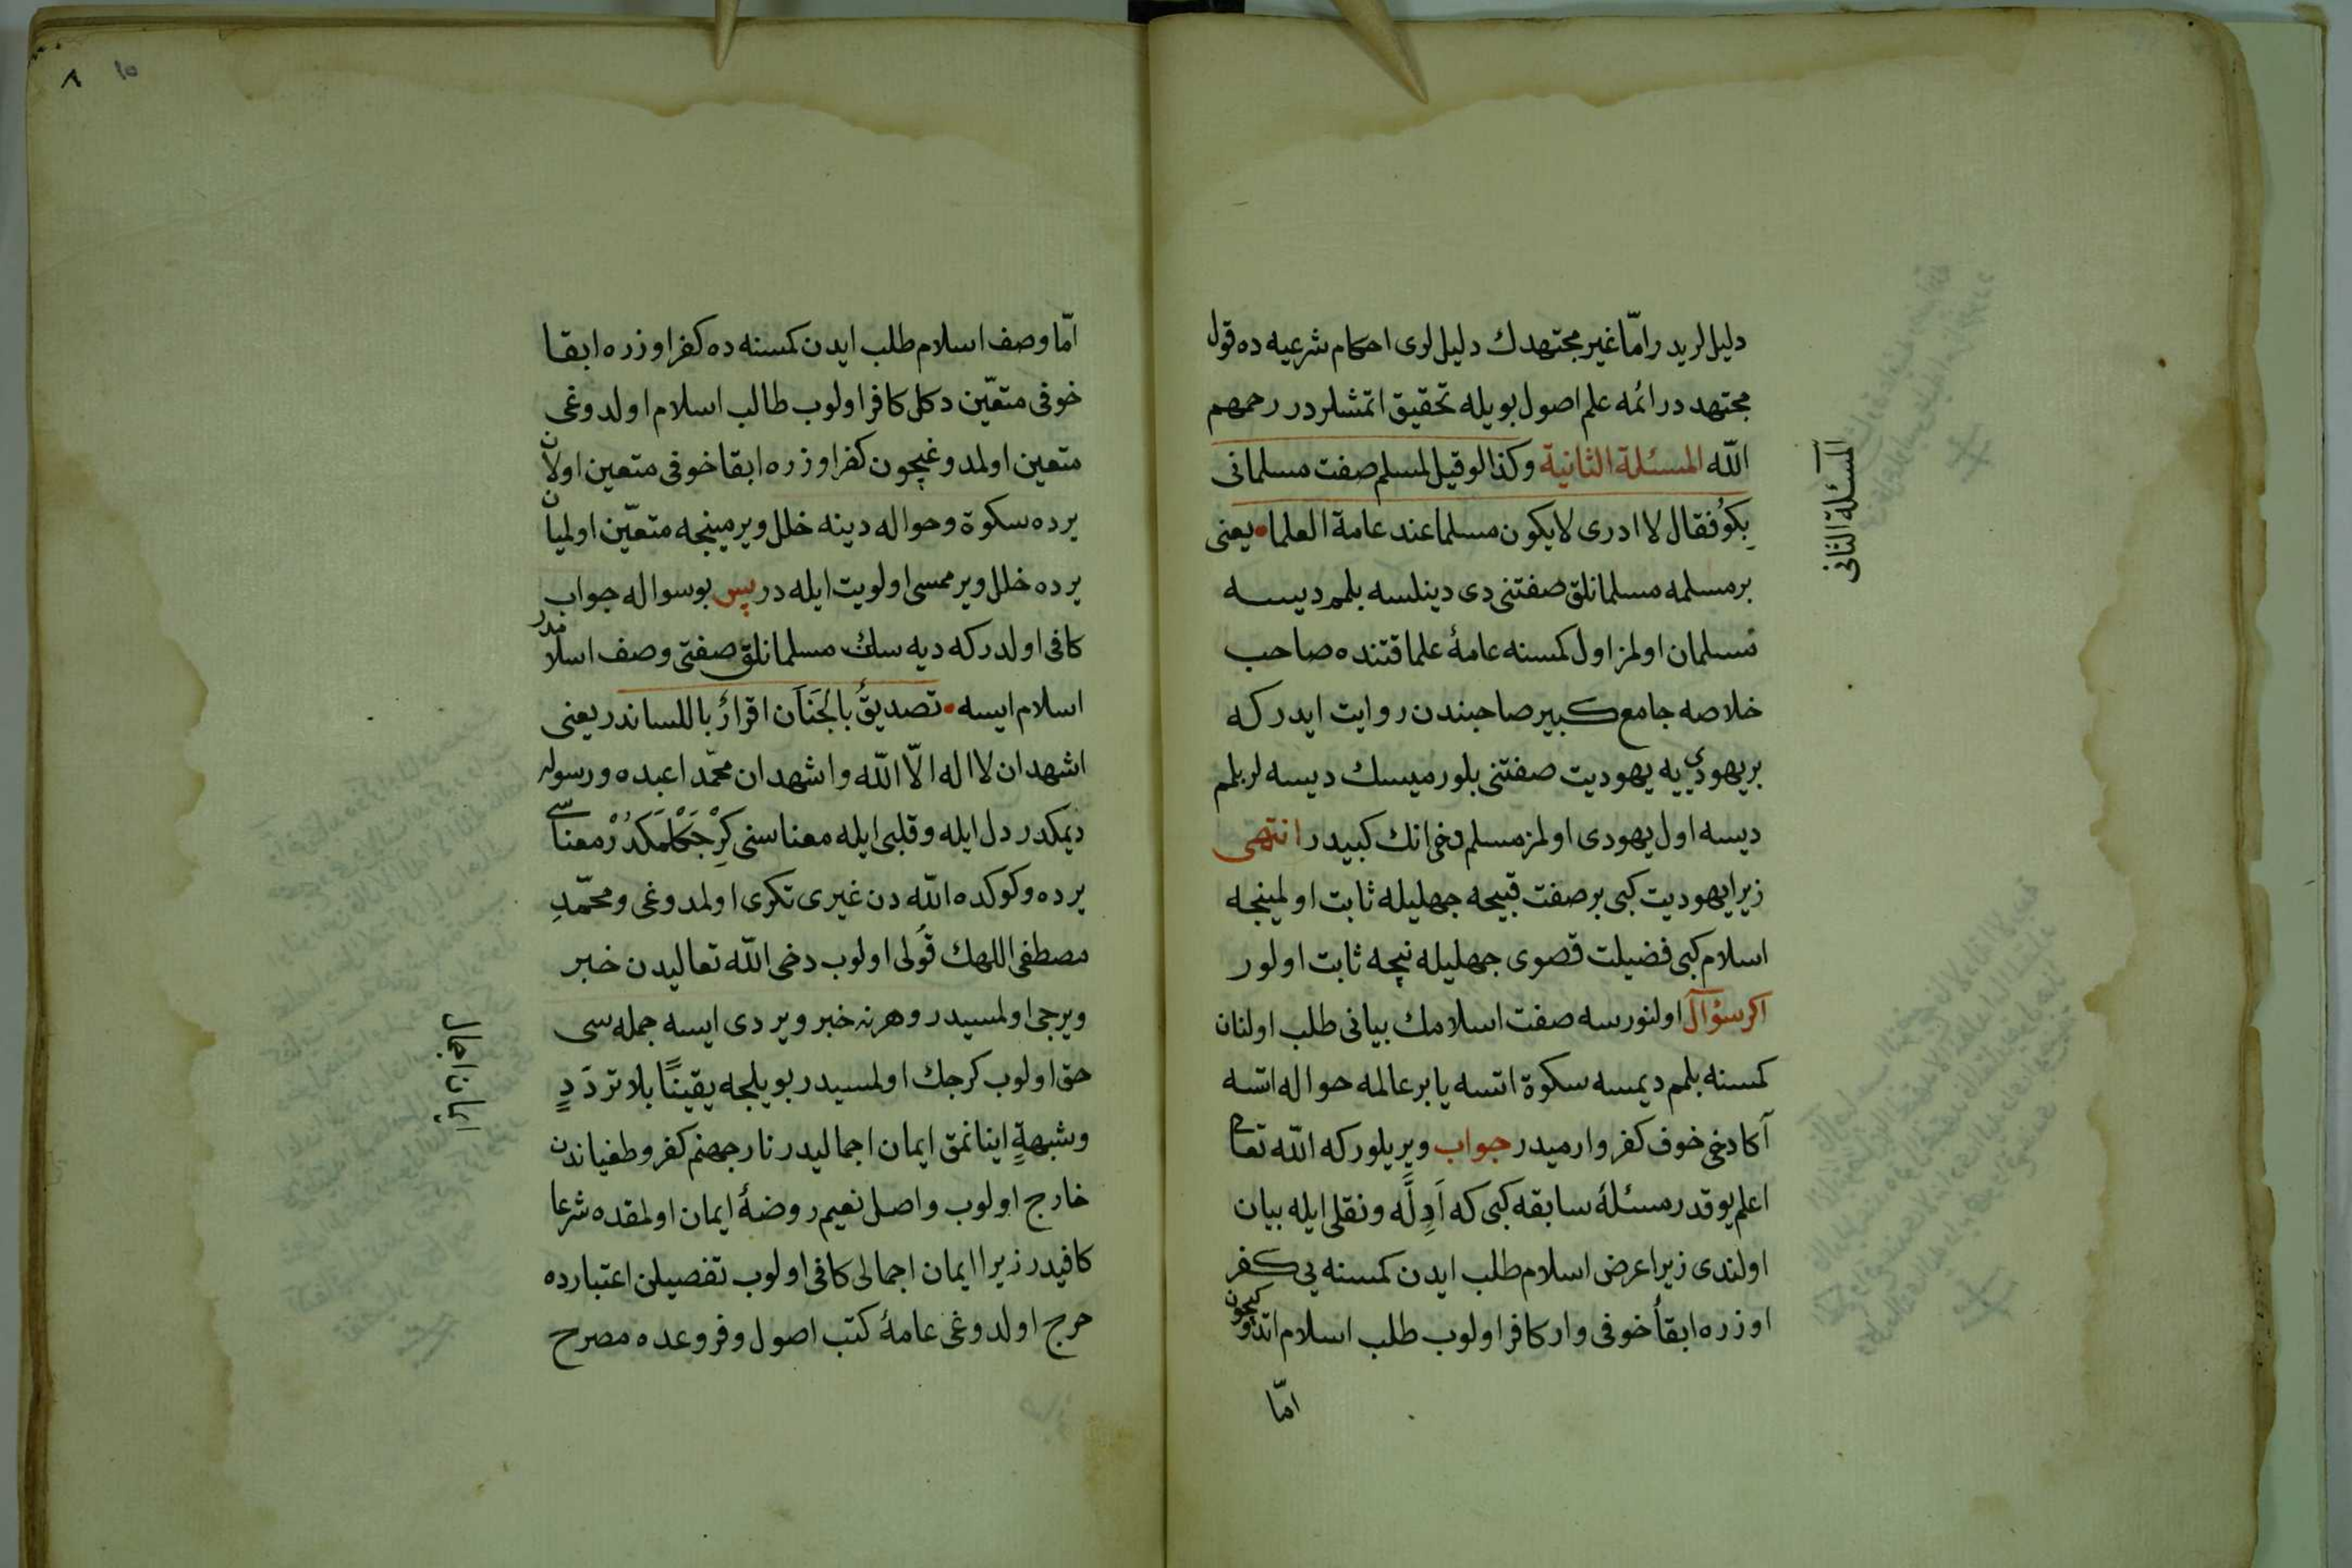 دلیللریدر امّا غیر مجتهدك دلیللری احکام شرعیه ده قول
مجتهددر ائمه علم اصول بویله تحقیق اتمشلردر رحمهم
اللّه المسئلة الثانیة وکذا لو قیل لمسلم صفت مسلمانی
بِکوُ فقال لا ادری لا یکون مسلما عند عامة العلما • یعنی
بر مسلمه مسلمانلق صفتنی دی دینلسه بلمم دیسه
مسلمان اولمز اول کمسنه عامۀ علما قتنده صاحب
خلاصه جامع کبیر صاحبندن روایت ایدر که
بر یهودی یه یهودیت صفتنی بلورمیسك دیسه لر بلمم
دیسه اول یهودی اولمز مسلم دخی انك کبیدر انتهی
زیرا یهودیت کبی بر صفت قبیحه جهلیله ثابت اولمینجه
اسلام کبی فضیلت قصوی جهلیله نیچه ثابت اولور
اکر سؤال اولنورسه صفت اسلامك بیانی طلب اولنان
کمسنه بلمم دیمسه سکوة اتسه یا بر عالمه حواله اتسه
آکا دخی خوف کفر وارمیدر جواب ویریلور که اللّه تعا
اعلم یوقدر مسئلۀ سابقه کبی که اَدِلَّه ونقلی ایله بیان
اولندی زیرا عرض اسلام طلب ایدن کمسنه یی کفر
اوزره ابقأ خوفی وار کافر اولوب طلب اسلام اتدوکیچون
امّا
المسئلة الثانی
٨ ١٥
امّا وصف اسلام طلب ایدن کمسنه ده کفر اوزره ابقا
خوفی متعیّن دکل کافر اولوب طالب اسلام اولدوغی
متعین اولمدوغیچون کفر اوزره ابقا خوفی متعین اولان
یرده سکوة وحواله دینه خلل ویرمینجه متعیّن اولمیان
یرده خلل ویرممسی اولویت ایله در پس بو سواله جواب
کافی اولدر که دیه سك مسلمانلق صفتی وصف اسلامدر
اسلام ایسه • تصدیقٌ بالجَنَان اقرارٌ باللساندر یعنی
اشهد ان لا اله الّا اللّه واشهد ان محمّدا عبده ورسوله
دیمکدر دل ایله وقلبی ایله معناسنی کِرْجَکْلمَکدُرْ معناسی
یرده وکوکده اللّه دن غیری تکری اولمدوغی ومحمّدِ
مصطفی اللهك قولی اولوب دخی اللّه تعالیدن خبر
ویرجی اولمسیدر وهرنه خبر ویردی ایسه جمله سی
حق اولوب کرجك اولمسیدر بویلجه یقینًا بلا تردّدٍ
وشبهةٍ اینانمق ایمان اجمالیدر نار جهنم کفر وطغیاندن
خارج اولوب واصل نعیم روضۀ ایمان اولمقده شرعا
کافیدر زیرا ایمان اجمالی کافی اولوب تفصیلن اعتبارده
حرج اولدوغی عامۀ کتب اصول وفروعده مصرح
ایمان اجمال